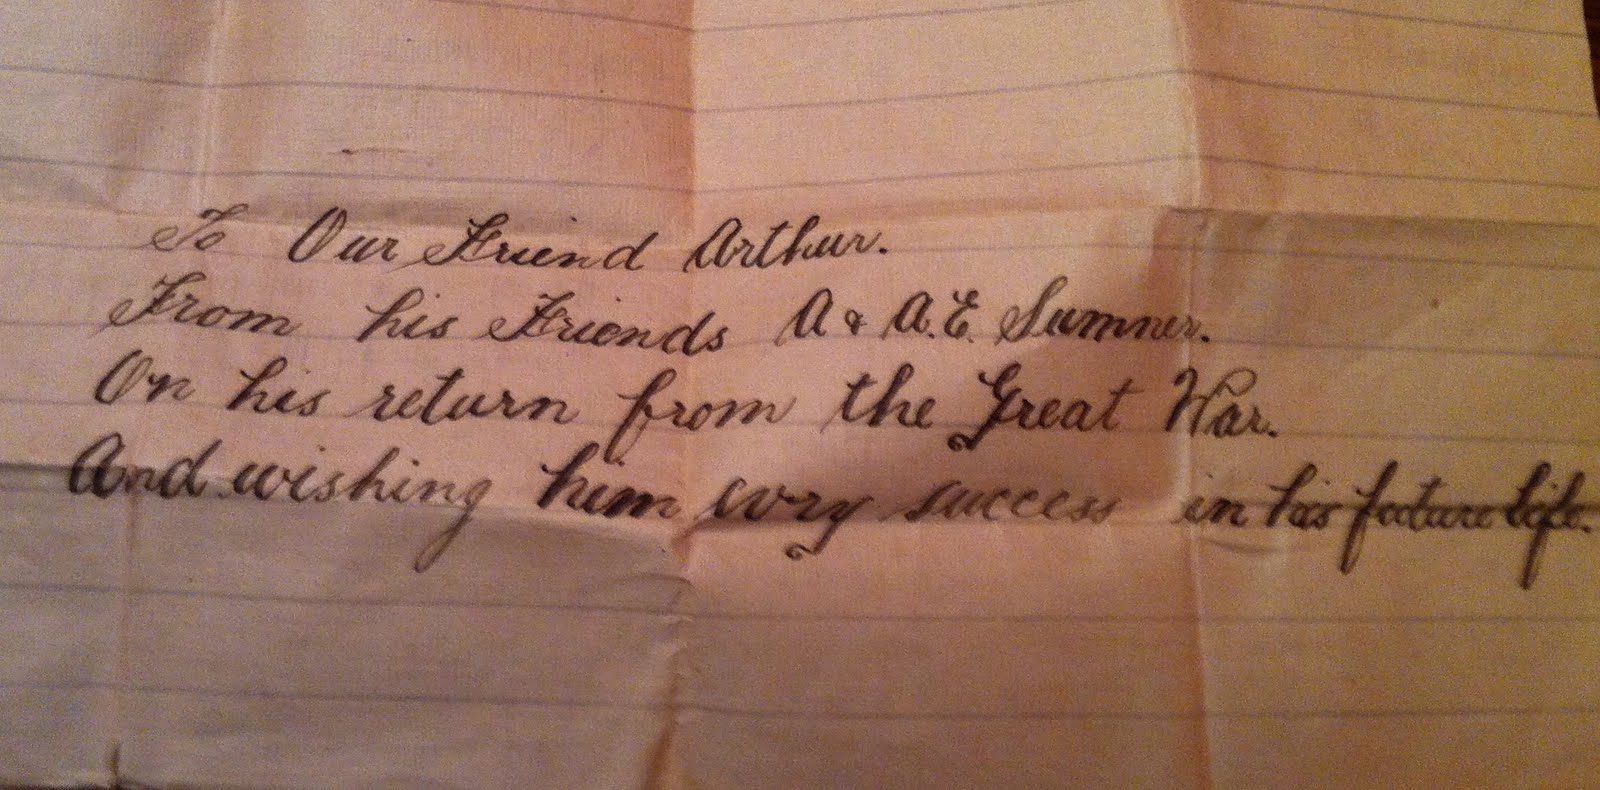 To Our Friend Arthur.
From his Friends A & A.E. Sumner.
On his return from the Great War.
And wishing him evry success in his future life.